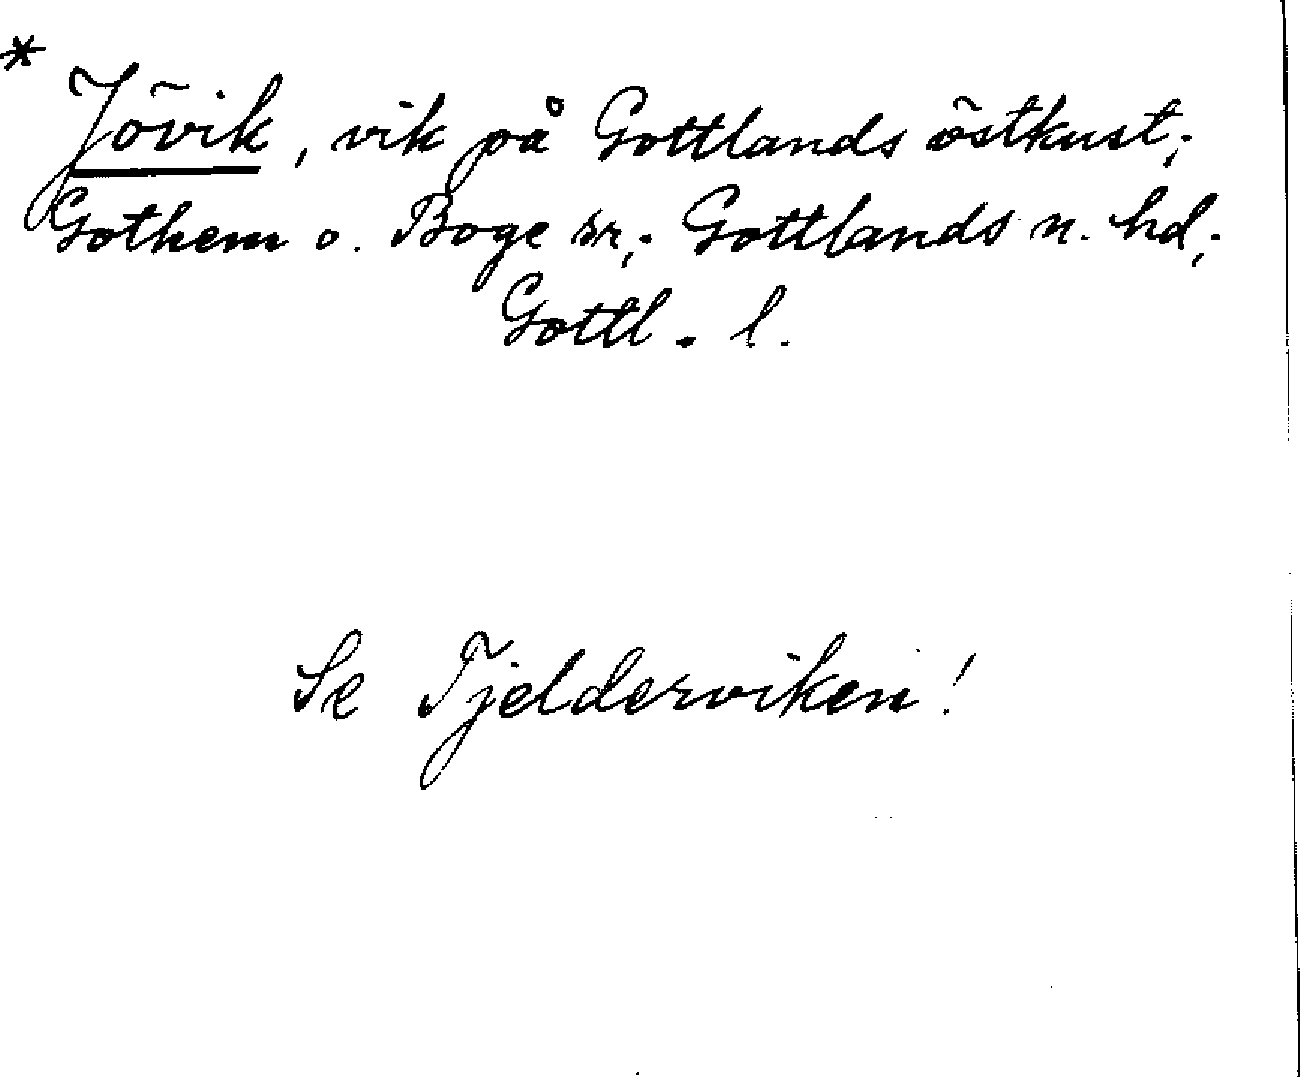 *
Jövik, vik på Gottlands östkust;
Gothem o. Boge sr; Gottlands n. hd;
Gottl. l.
Se Tjelderviken!